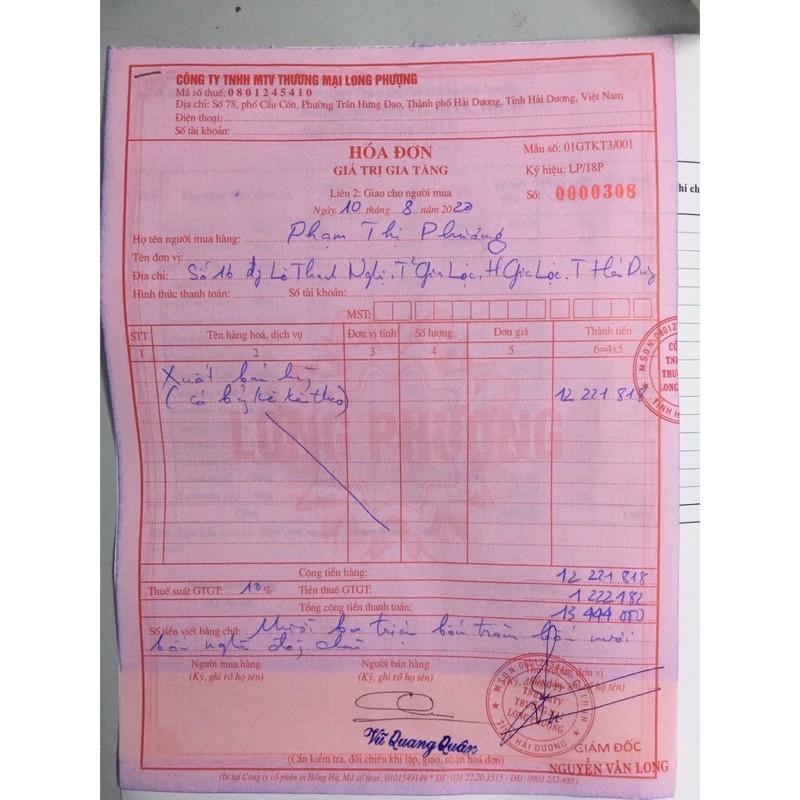 CÔNG TY TNHH MTV THƯƠNG MẠI LONG PHƯỢNG
Mã số thuế: 0801245410
Địa chỉ: Số 78, phố Cầu Cốn, Phường Trần Hưng Đạo, Thành phố Hải Dương, Tỉnh Hải Dương, Việt Nam
Điện thoại:
Số tài khoản:
HÓA ĐƠN
GIÁ TRỊ GIA TĂNG
Liên 2: Giao cho người mua
Ngày 10 tháng 8 năm 2020
Mẫu số: 01GTKT3/001
Ký hiệu: LP/18P
Số: 0000308
Họ tên người mua hàng: Phạm Thị Phường
Tên đơn vị:
Địa chỉ: Số 16 Lê Thanh Nghị, T² Gia Lộc, H Gia Lộc, T Hải Dương
Hình thức thanh toán: Số tài khoản:
MST:
STT Tên hàng hoá, dịch vụ Đơn vị tính Số lượng Đơn giá Thành tiền
1 2 3 4 5 6=4x5
Xuất bán
(có bảng kê kèm theo) 12 221 818
LONG PHƯỢNG
Cộng tiền hàng: 12 221 818
Thuế suất GTGT: 10% Tiền thuế GTGT: 1 222 182
Tổng cộng tiền thanh toán: 13 444 000
Số tiền viết bằng chữ: Mười ba triệu bốn trăm bốn mươi
bốn nghìn đồng chẵn
Người mua hàng Người bán hàng
(Ký, ghi rõ họ tên) (Ký, ghi rõ họ tên)
M.S.D.N: 0801245410
CÔNG TY
TNHH MTV
THƯƠNG MẠI
LONG PHƯỢNG
TỈNH HẢI DƯƠNG
Vũ Quang Quân
GIÁM ĐỐC
NGUYỄN VĂN LONG
(Cần kiểm tra, đối chiếu khi lập, giao, nhận hóa đơn)
(In tại Công ty cổ phần in Hồng Hà, Mã số thuế: 0101549149 * ĐT: 024.22.20.1515 - DĐ: 0903 232.485)